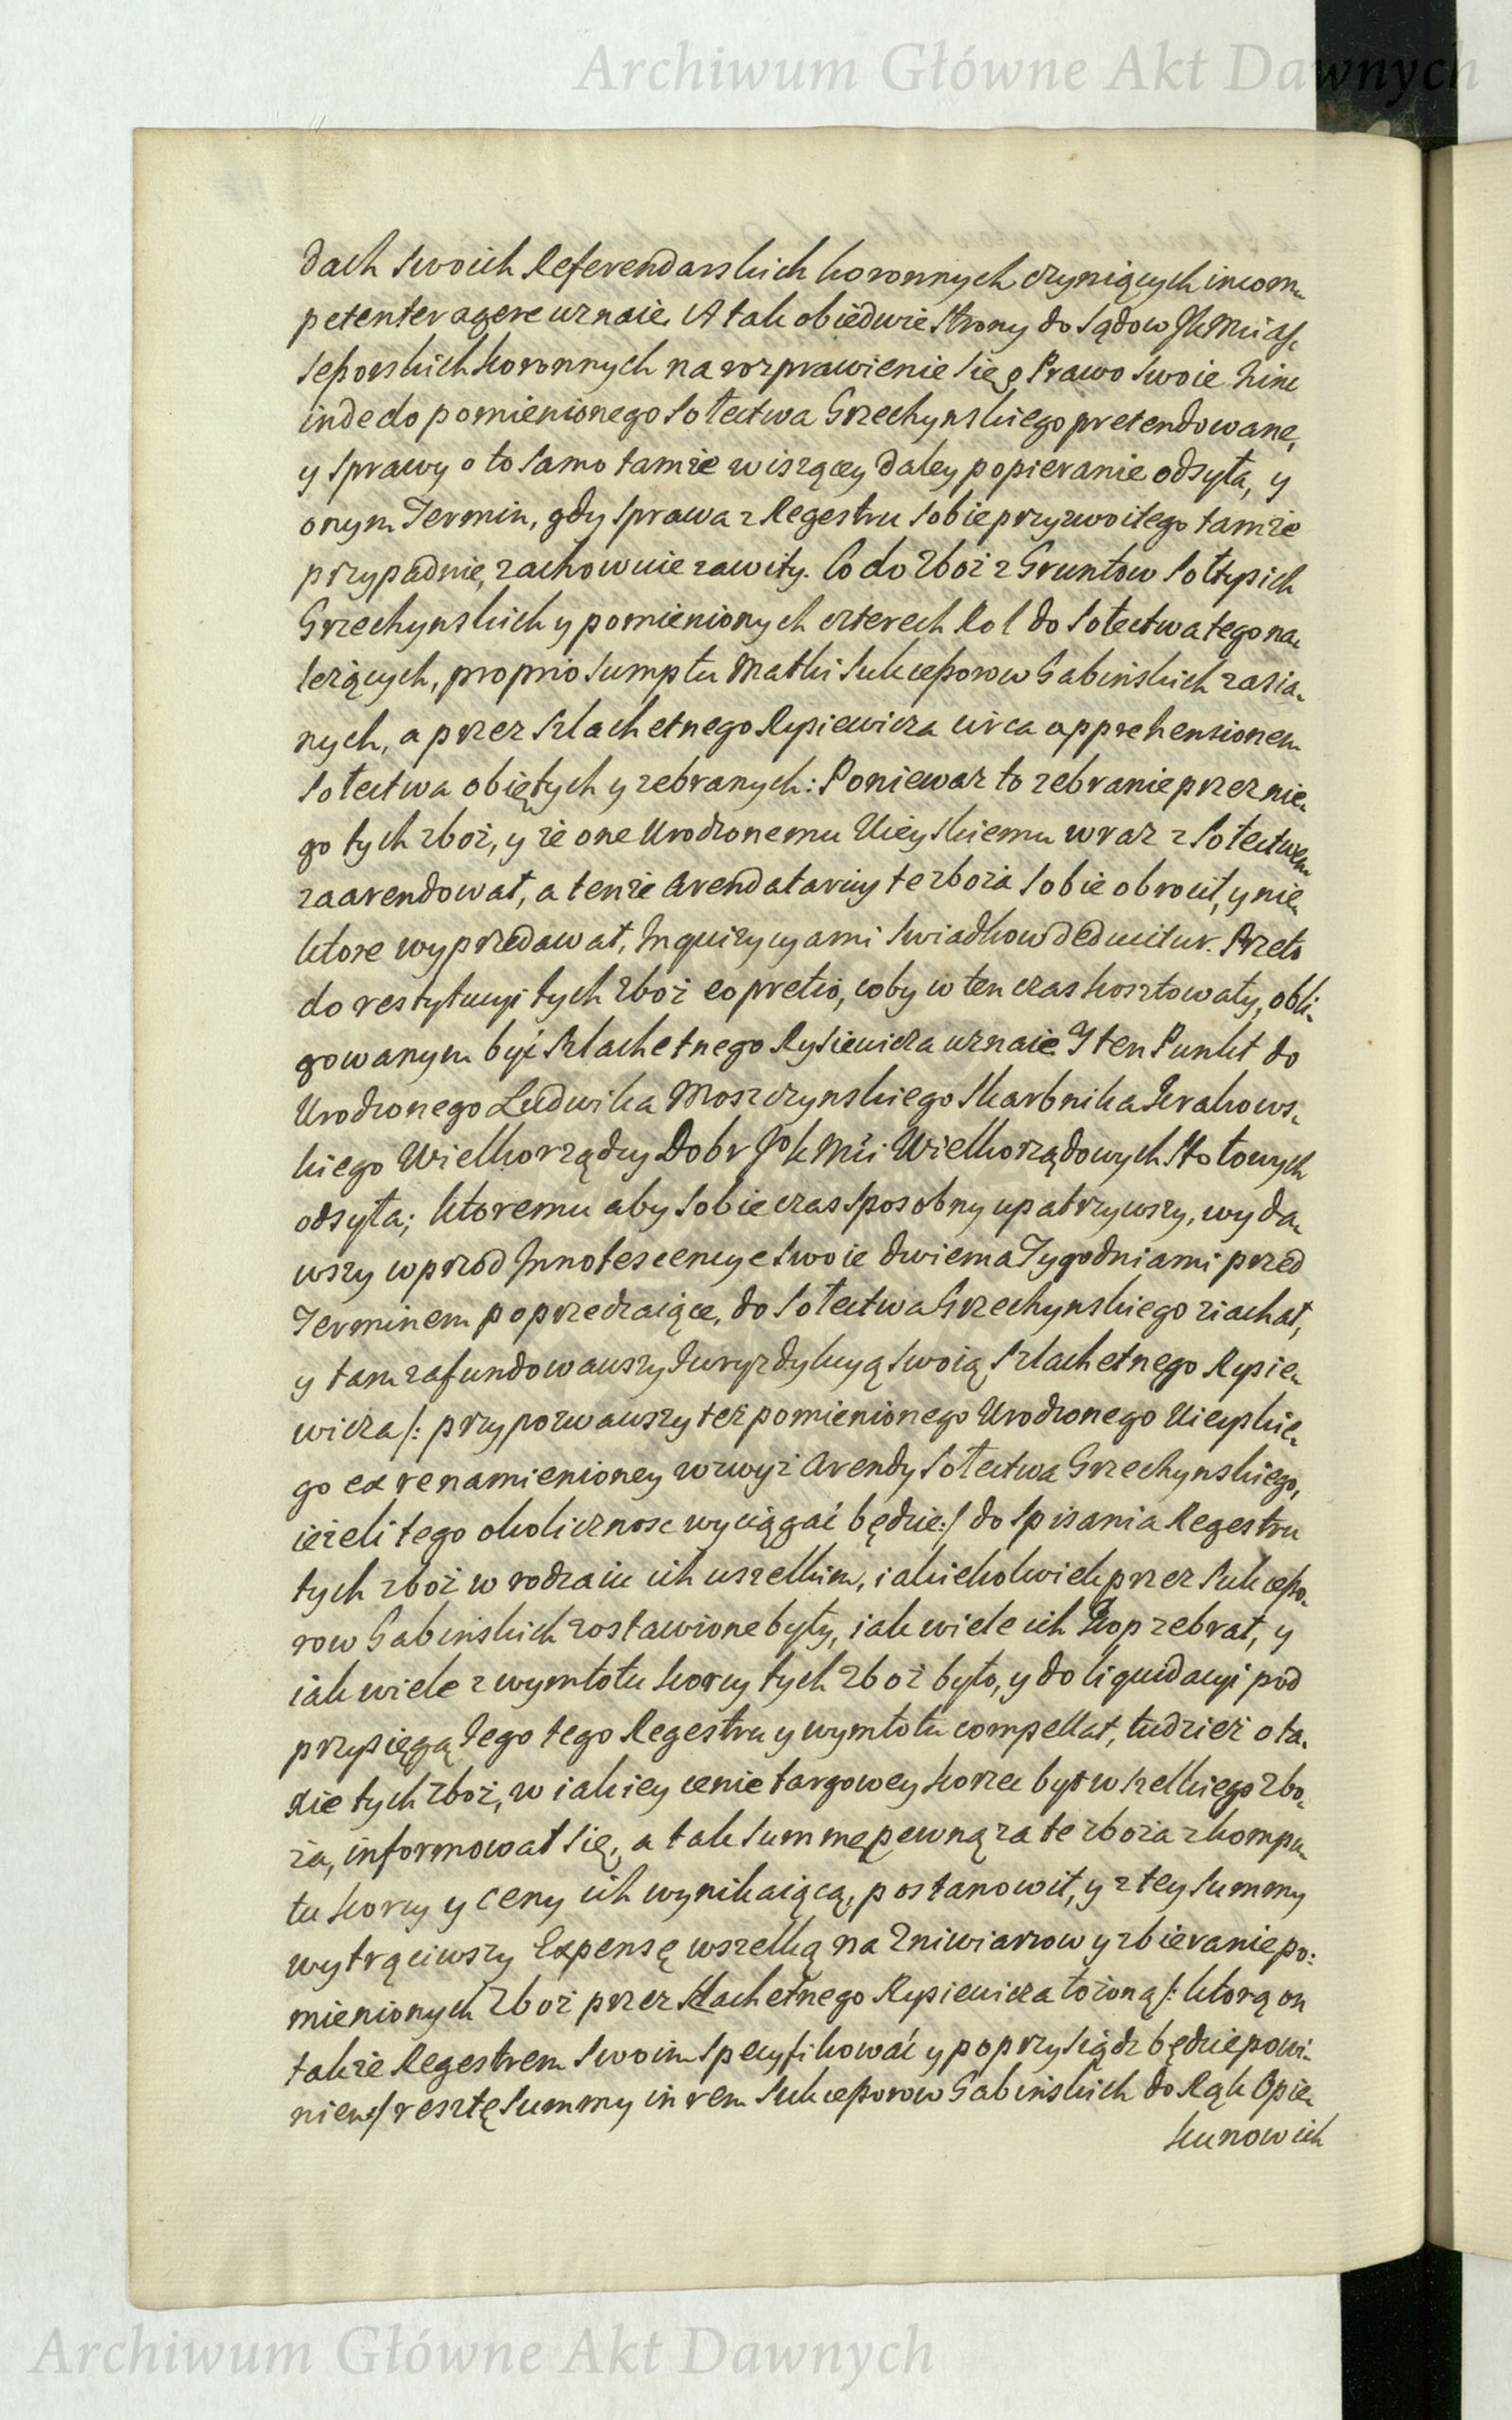 Archiwum Główne Akt Dawnych
dach swoich Referendarskich koronnych czyniących incom-
petenter agere uznaie. A tak obiedwie strony do Sądow JKMci As-
sessorskich koronnych na rozprawienie się o Prawo swoie hinc
inde do pomienionego Sołectwa Grzechynskiego pretendowane,
y sprawy o to samo tamże wiszącey daley popieranie odsyła, y
onym Termin, gdy sprawa z Regestru sobie przyzwoitego tamże
przypadnie, zachowuie zawity. Co do zboż z Gruntow Sołtysich
Grzechynskich y pomienionych czterech Rol do Sołectwa tego na-
leżących, proprio sumptu Matki Sukcessorow Gabinskich zasia-
nych, a przez Szlachetnego Rysiewicza circa apprehensionem
Sołectwa obiętych y zebranych: Ponieważ to zebranie przez nie-
go tych zboż, y że one Urodzonemu Uieyskiemu wraz z Sołectwem
zaarendował, a tenże Arendatariusz te zboża sobie obrocił, y nie-
ktore wyprzedawał, Inquizycyami Swiadkow deducitur. Przeto
do restytucyi tych zboż eo pretio, coby w ten czas kosztowały, obli-
gowanym być Szlachetnego Rysiewicza uznaie. I ten Punkt do
Urodzonego Ludwika Moszczynskiego Skarbnika Krakows-
kiego Wielkorządcy Dobr JoKMci Wielkorządowych Stołowych
odsyła; ktoremu aby sobie czas sposobny upatrzywszy, wyda-
wszy wprzod Innotescencye swoie dwiema Tygodniami przed
Terminem poprzedzaiące, do Sołectwa Grzechynskiego ziachał,
y tam zafundowawszy Juryzdykcyą swoią Szlachetnego Rysie-
wicza /: przypozwawszy też pomienionego Urodzonego Uieyskie-
go ex re namienioney wzwyż Arendy Sołectwa Grzechynskiego,
ieżeli tego okolicznosc wyciągać będzie:/ do spisania Regestru
tych zboż w rodzaiu ich wszelkim, iakiekolwiek przez Sukcesso-
row Gabinskich zostawione były, iak wiele ich Kop zebrał, y
iak wiele z wymłotu korcy tych zboż było, y do liquidacyi pod
przysięgą Jego tego Regestru y wymłotu compellat, tudzież o ta-
xie tych zboż, w iakiey cenie targowey korzec był wszelkiego zbo-
ża, informował się, a tak summę pewną za te zboża z kompu-
tu korcy y ceny ich wynikaiącą, postanowił, y z tey summy
wytrąciwszy Expensę wszelką na Zniwiarzow y zbieranie po-
mienionych zboż przez Szlachetnego Rysiewicza łożoną /: ktorą on
także Regestrem swoim specyfikować y poprzysiądz będzie powi-
nien :/ resztę summy in rem Sukcessorow Gabinskich do Rąk Opie-
kunow ich
Archiwum Główne Akt Dawnych